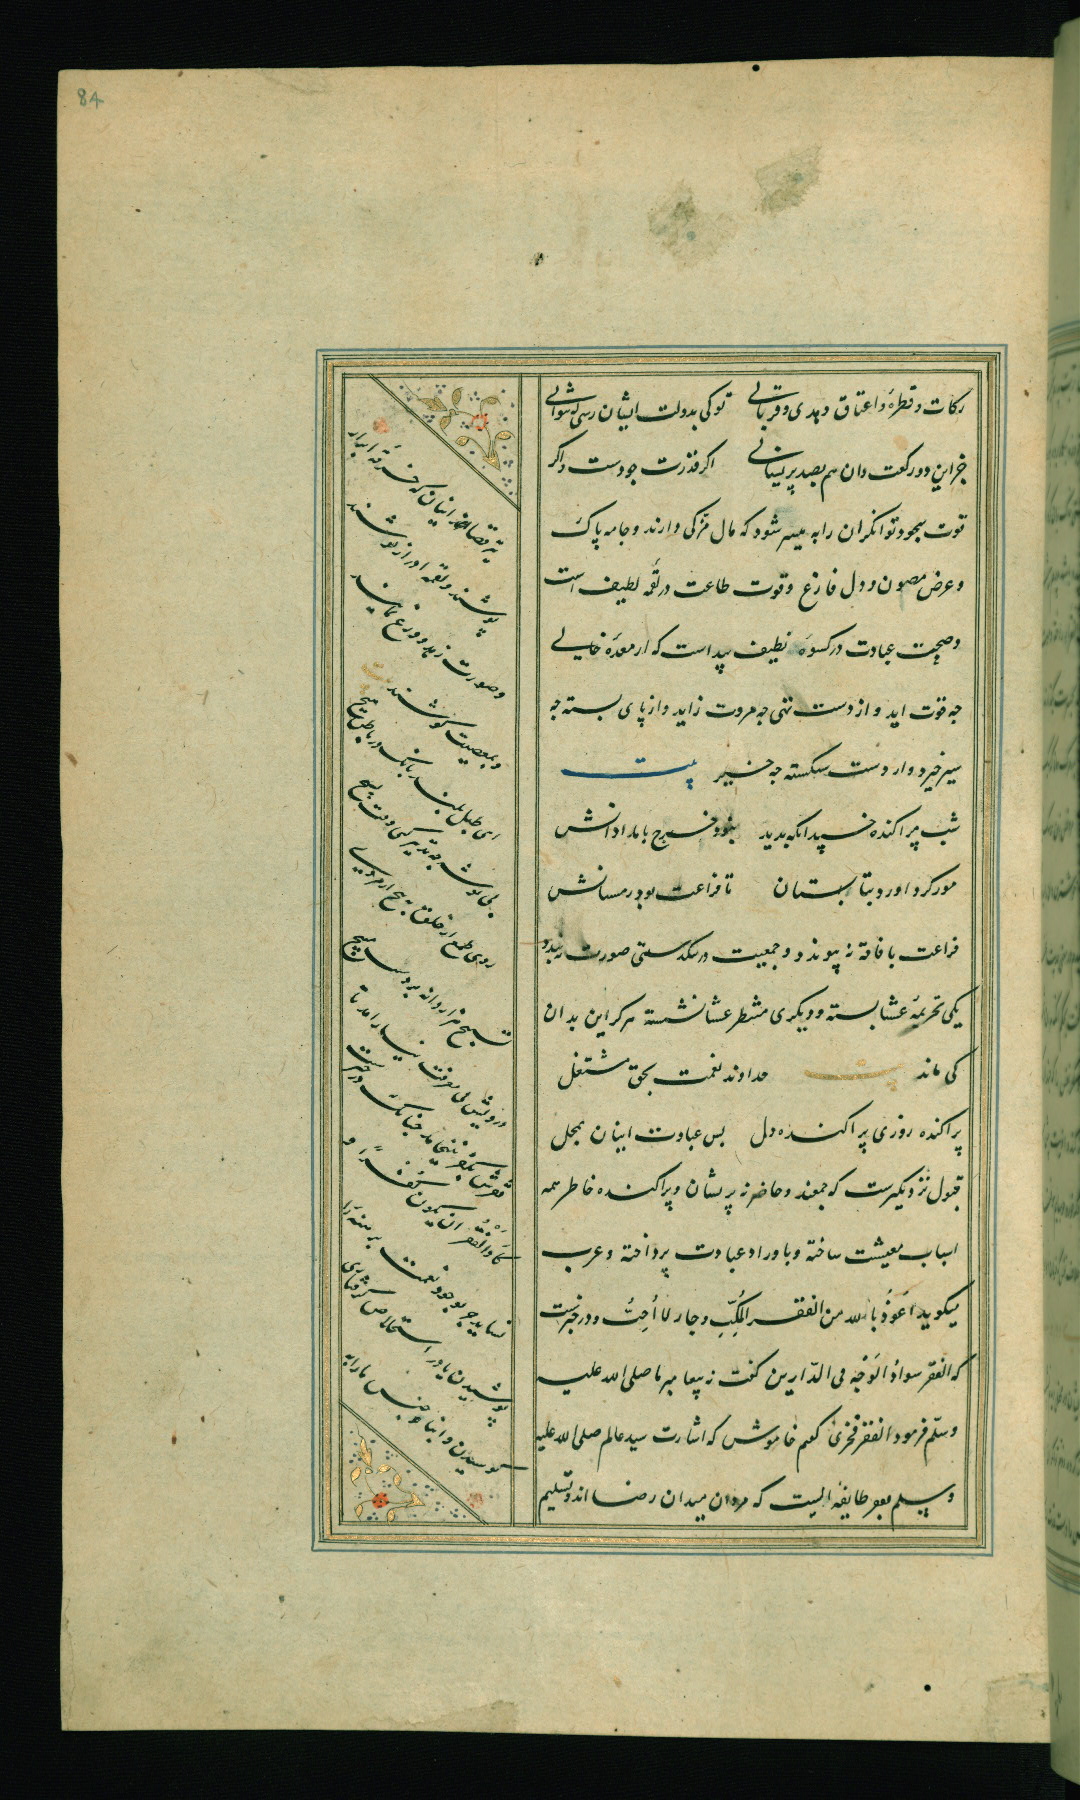 84
زکات و فطره و اعتاق و هدی و قربانی تو کی بدولت ایشان رسی که نتوانی
جز این دو رکعت وان هم بصد پریشانی اکر قدرت جودست و اکر
قوت سجود توانکران را به میسر شود که مال مزکی دارند و جامه پاک
و عرض مصون و دل فارغ و قوت طاعت در لقمه لطیف است
و صحت عبادت در کسوة نظیف پیداست که از معدۀ خالی
چه قوت اید و از دست تهی چه مروت زاید و از پای بسته چه
سیر خیزد و از دست شکسته چه خیر بیت
شب پراکنده خسپد انکه بدید نبود خرج بامدادانش
مور کرد اورد بتابستان تا فراغت بود زمستانش
فراغت با فاقه نه پیوندد و جمعیت در تنکدستی صورت نبندد
یکی تحریمۀ عشا بسته و دیکری منتظر عشا نشسته هرکز این بدان
کی ماند بیت خداوند نعمت بحق مشتغل
پراکنده روزی پراکنده دل بس عبادت اینان بمحل
قبول نزدیکترست که جمعند و حاضر نه پریشان و پراکنده خاطر همه
اسباب معیشت ساخته و باوراد عبادت پرداخته و عرب
میکوید اَعُوذُ بالله من الفقر المُکِبِّ و جار لا اُحِبُّ و در خبرست
که الفقر سوادُ الوَجْه فی الدّارین کفت نه پیغامبر ما صلی الله علیه
وسلّم فرمود الفقر فخری کفتم خاموش که اشارت سید عالم صلی الله علیه
و سلم بفقر طایفه ایست که مردان میدان رضا اند و تسلیم
تیر قضا نه اینان که خرقۀ ابرار
پوشند و لقمۀ ادرار نوشند
و صورت زهد و ورع نمایند
و بمعصیت کوشند بیت
ای طبل بلند بانک در باطن هیچ
بی توشه چه تدبیر کنی وقت بسیچ
روی طمع از خلق بپیچ ار مردی
تسبیح هزار دانه بر دست مپیچ
درویش بی معرفت نیارامد تا
فقرش بکفر نینجامد چنانک در خبرست
کادَ الفقر ان یکون کُفْرًا و
نشاید جز بوجود نعمت برهنه را
پوشیدن یا در استخلاص کرفتاری
کوشیدن و ابنای جنس ما را به